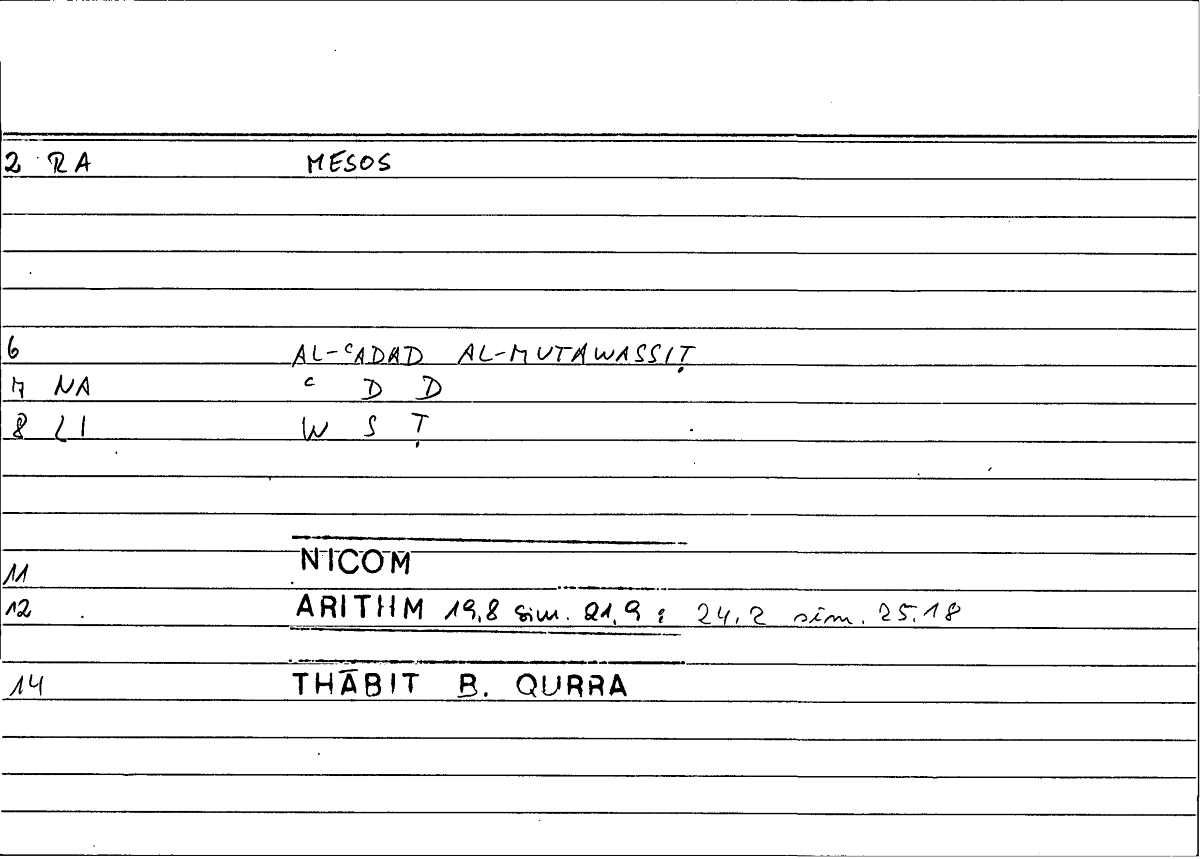 2 RA MESOS
6 AL-ᶜADAD AL-MUTAWASSIṬ
7 NA ᶜ D D
8 LI W S Ṭ
11 NICOM
12 ARITHM 19,8 sim. 21,9 ; 24,2 sim. 25,18
14 THĀBIT B. QURRA